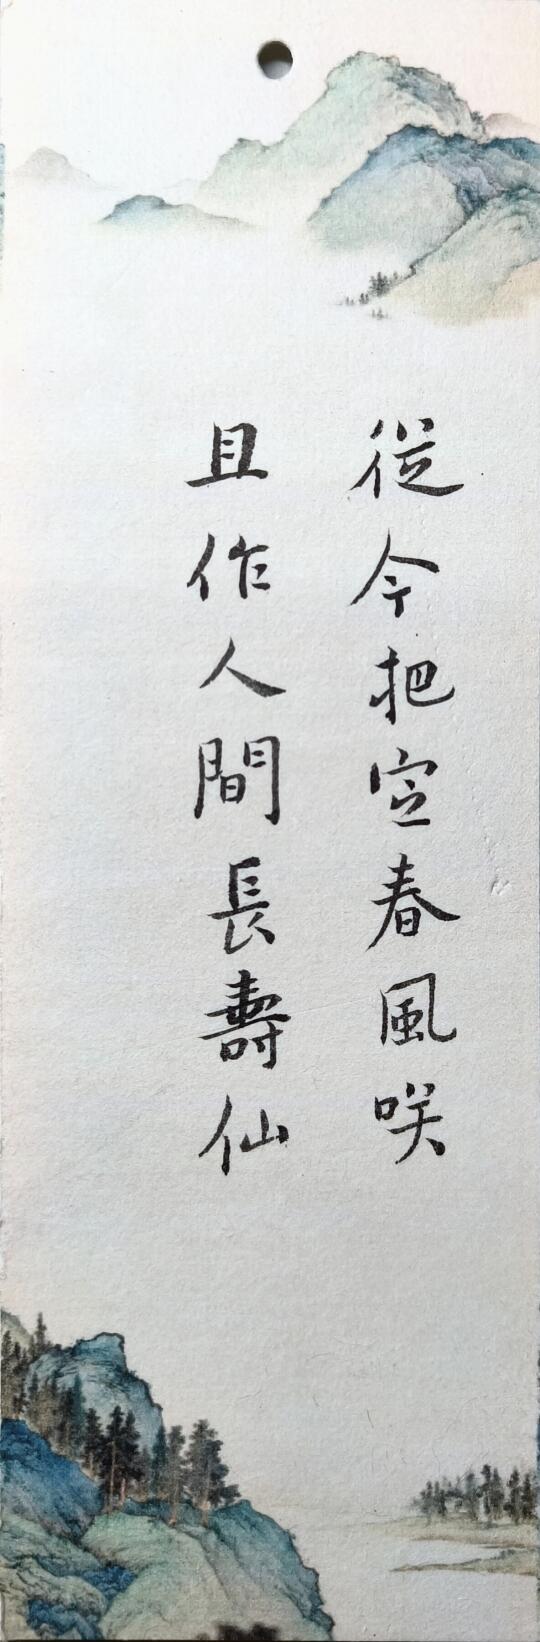 從今把定春風咲
且作人間長壽仙